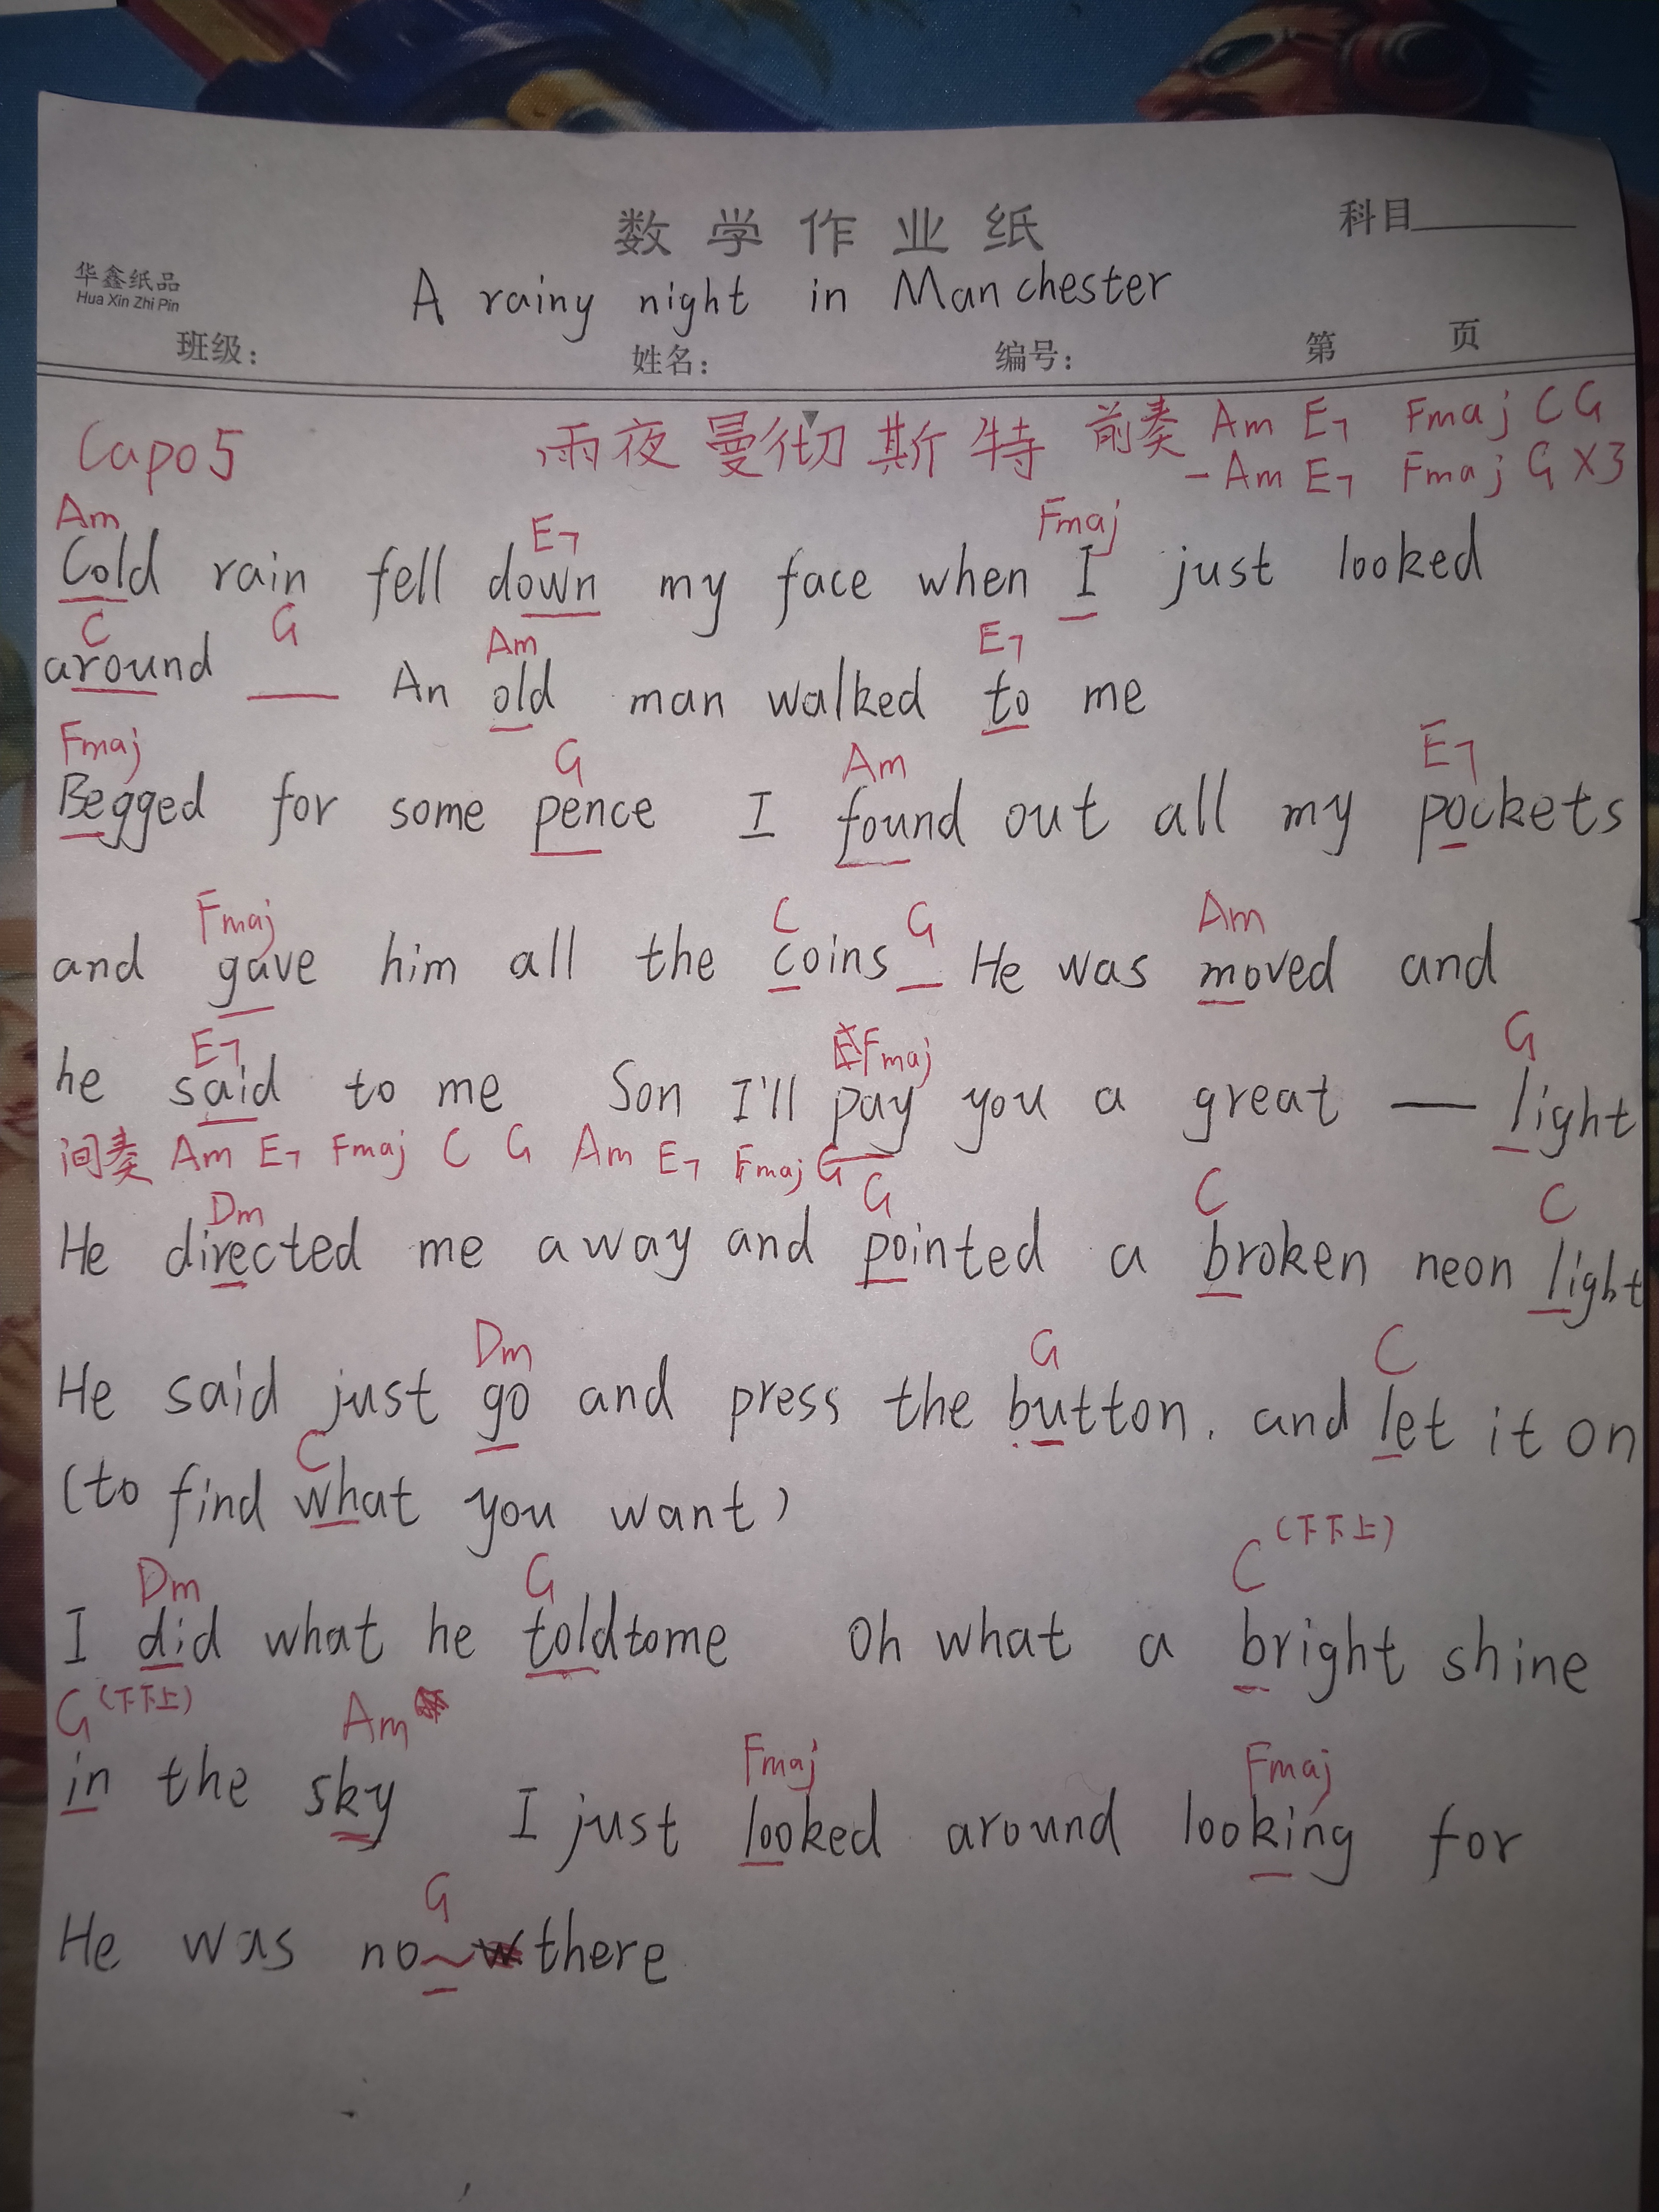 数学作业纸
科目
华鑫纸品
Hua Xin Zhi Pin
A rainy night in Manchester
班级: 姓名: 编号: 第 页
Capo 5 雨夜曼彻斯特 前奏 Am E7 Fmaj C G
- Am E7 Fmaj G X3
Am E7 Fmaj
Cold rain fell down my face when I just looked
C G Am E7
around __ An old man walked to me
Fmaj G Am E7
Begged for some pence I found out all my pockets
Fmaj C G Am
and gave him all the coins _ He was moved and
E7 Fmaj G
he said to me Son I'll pay you a great — light
间奏 Am E7 Fmaj C G Am E7 Fmaj G
Dm G C C
He directed me away and pointed a broken neon light
Dm G C
He said just go and press the button. and let it on
C
(to find what you want)
Dm G C (下下上)
I did what he toldtome Oh what a bright shine
G (下下上) Am Fmaj Fmaj
in the sky I just looked around looking for
G
He was no~ there